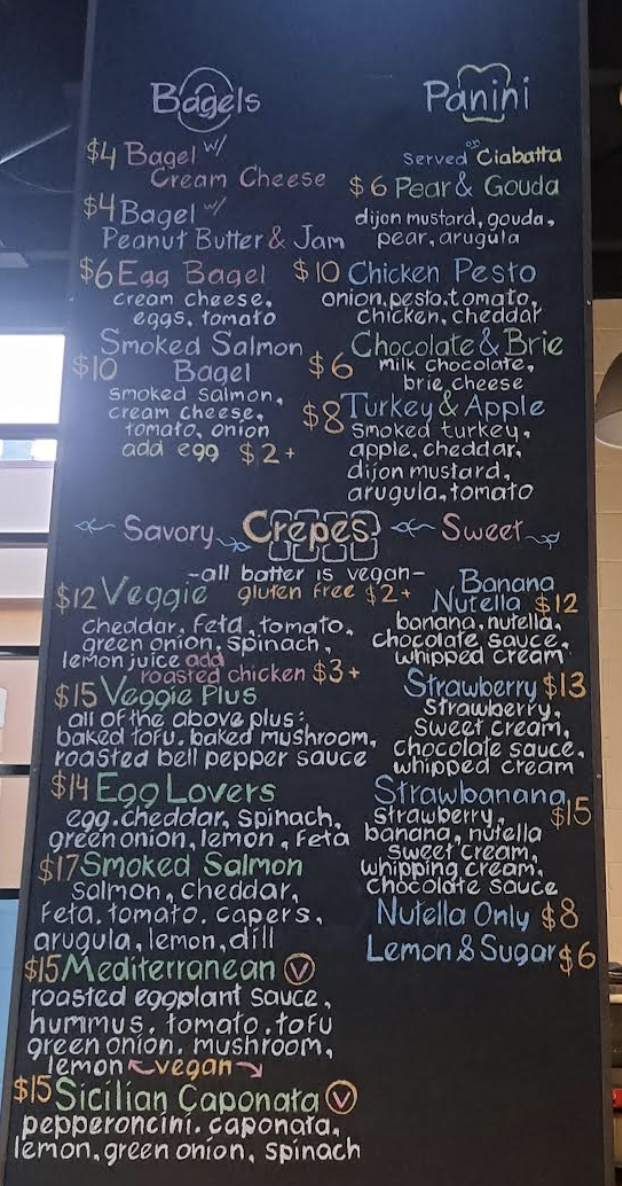 Bagels
$4 Bagel w/
Cream Cheese
$4 Bagel w/
Peanut Butter & Jam
$6 Egg Bagel
cream cheese,
eggs, tomato
Smoked Salmon
$10 Bagel
smoked salmon,
cream cheese,
tomato, onion
add egg $2+
Panini
served on Ciabatta
$6 Pear & Gouda
dijon mustard, gouda,
pear, arugula
$10 Chicken Pesto
onion, pesto, tomato,
chicken, cheddar
Chocolate & Brie
$6 milk chocolate,
brie cheese
$8 Turkey & Apple
smoked turkey,
apple, cheddar,
dijon mustard,
arugula, tomato
Savory Crepes Sweet
-all batter is vegan-
gluten free $2+
$12 Veggie
cheddar, feta, tomato,
green onion, spinach,
lemon juice add
roasted chicken $3+
$15 Veggie Plus
all of the above plus:
baked tofu, baked mushroom,
roasted bell pepper sauce
$14 Egg Lovers
egg, cheddar, spinach,
green onion, lemon, feta
$17 Smoked Salmon
Salmon, cheddar,
feta, tomato, capers,
arugula, lemon, dill
$15 Mediterranean V
roasted eggplant sauce,
hummus, tomato, tofu
green onion, mushroom,
lemon vegan
$15 Sicilian Caponata V
pepperoncini, caponata,
lemon, green onion, spinach
Banana
Nutella $12
banana, nutella,
chocolate sauce,
whipped cream
Strawberry $13
strawberry,
sweet cream,
chocolate sauce,
whipped cream
Strawbanana
strawberry, $15
banana, nutella
sweet cream,
whipping cream,
chocolate sauce
Nutella Only $8
Lemon & Sugar $6